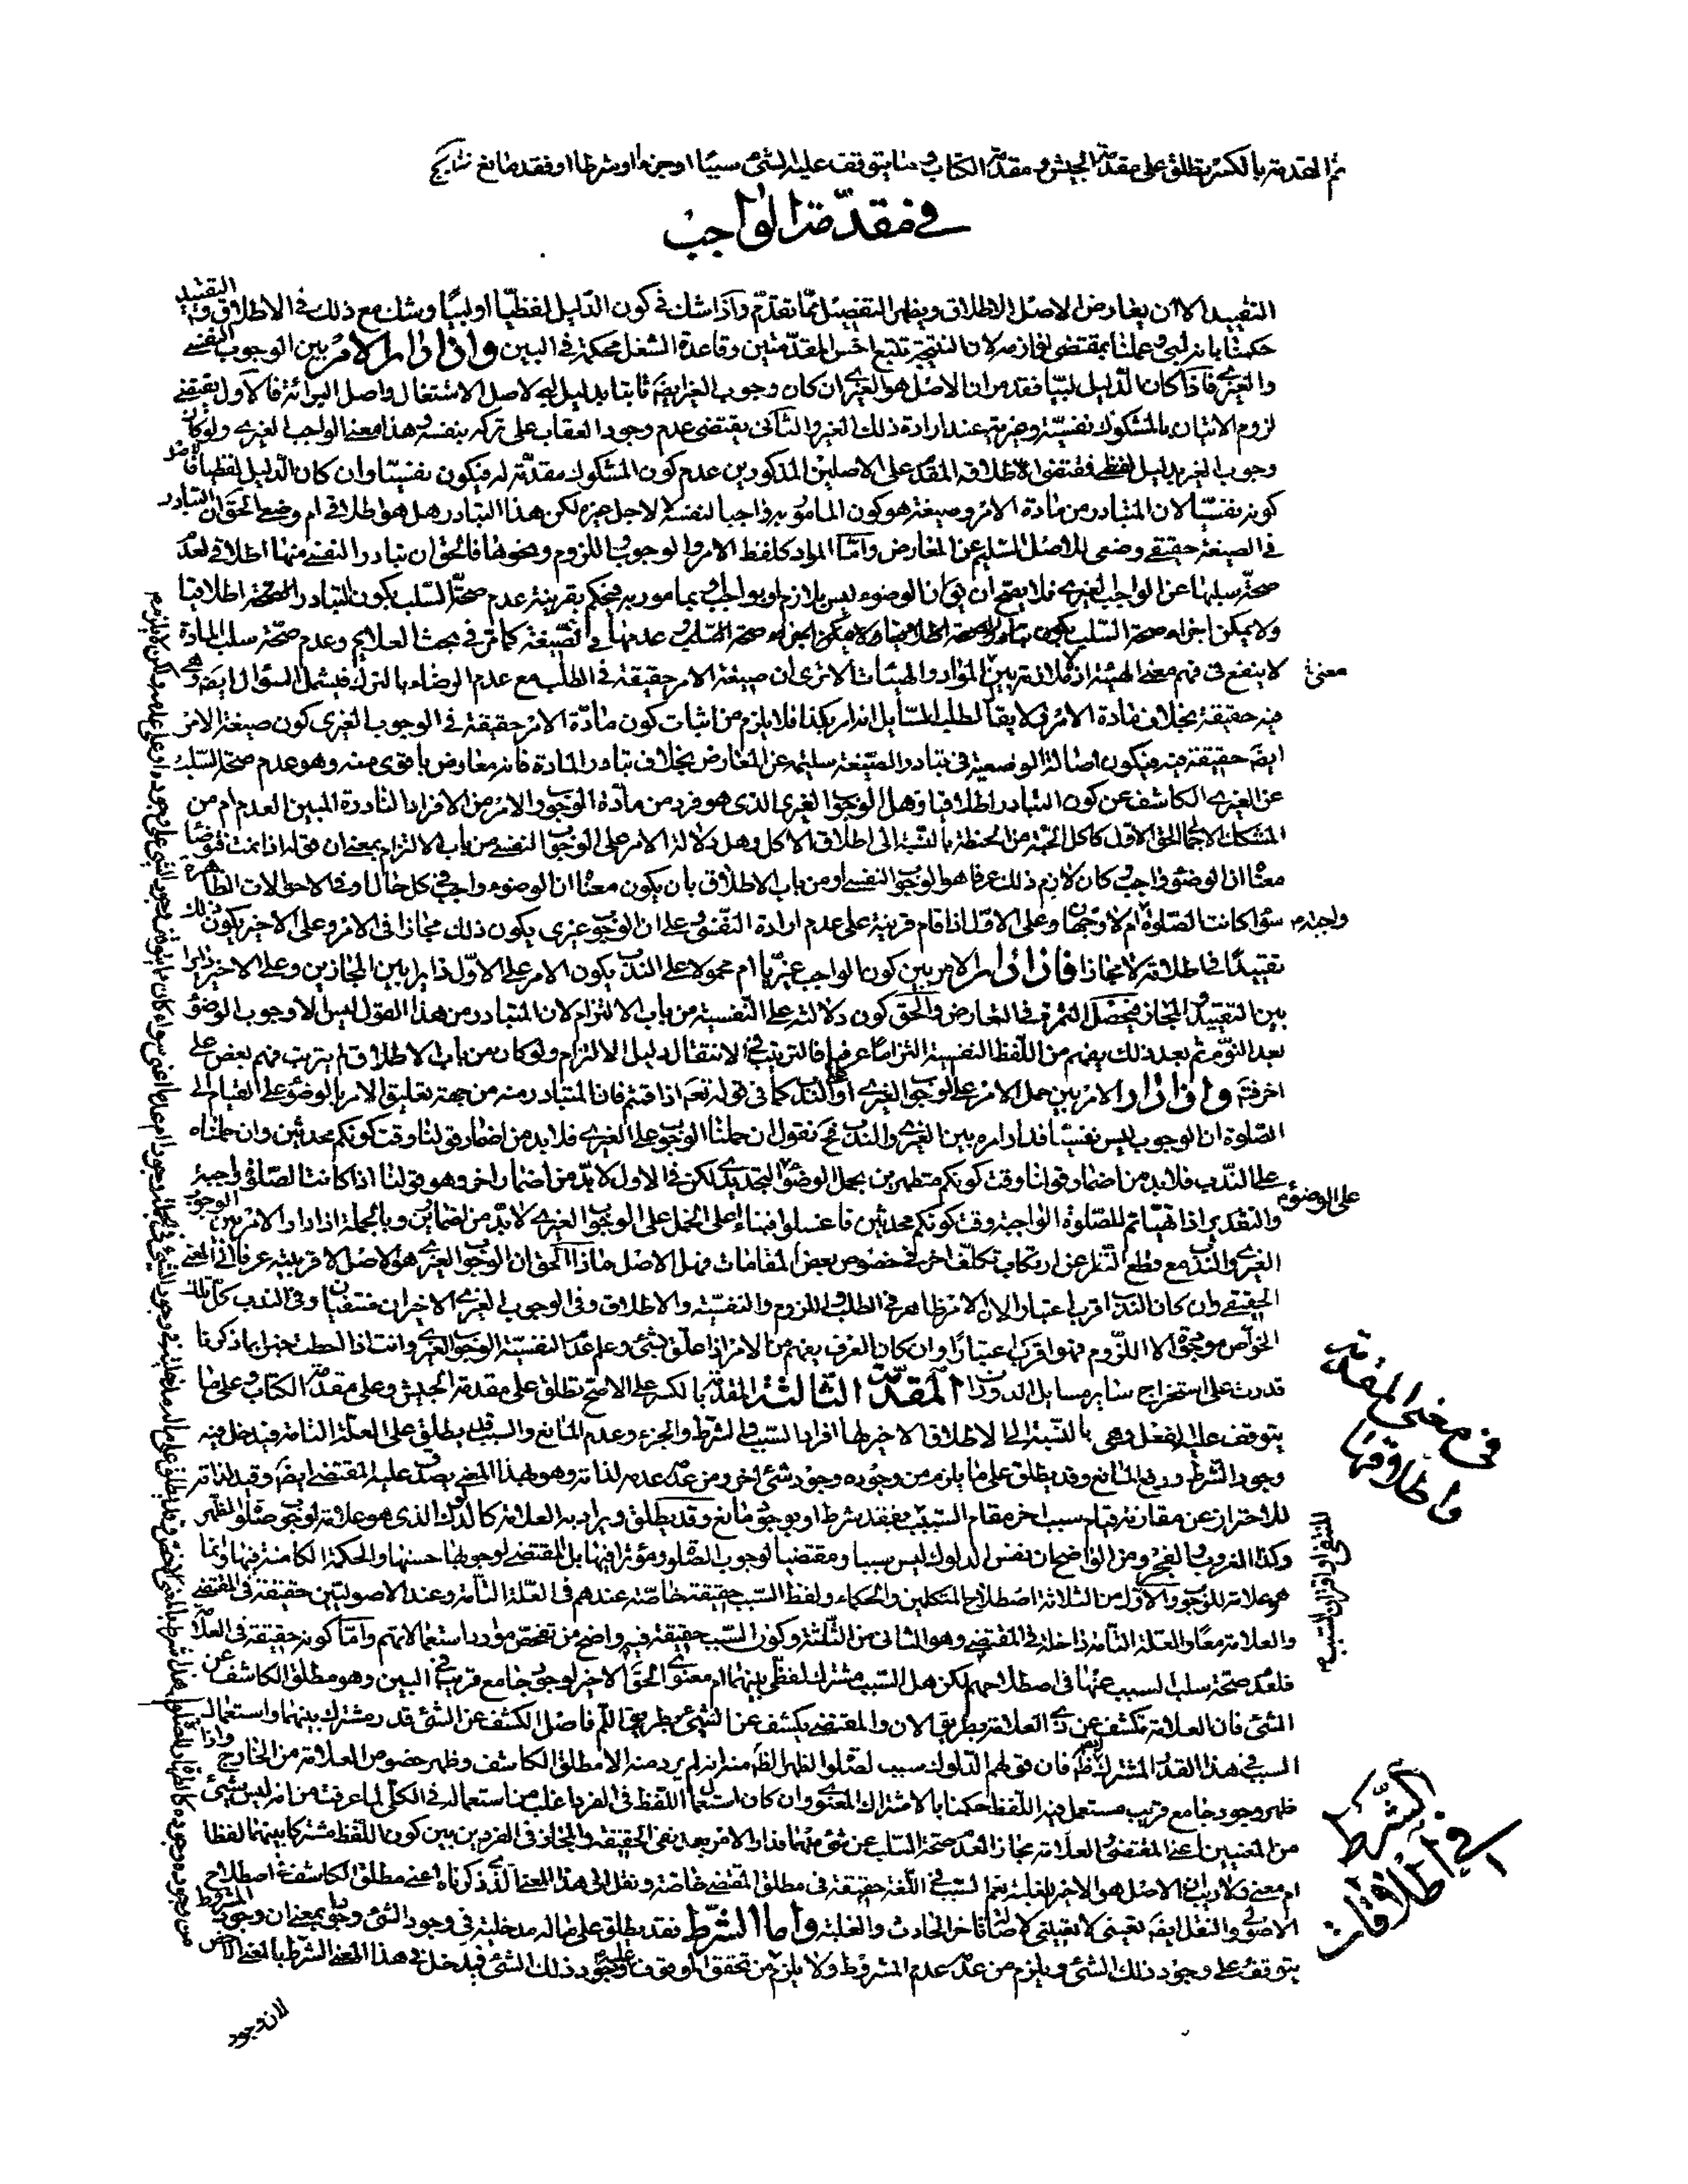 ثم المقدمة بالكسر يطلق على مقدمة الجيش و مقدمة الكتاب و ما يتوقف عليه الشئ سببا او جزءا او شرطا او فقد مانع
في مقدمة الواجب
التقييد الا ان يعارض الاصل الاطلاق و يظهر التفصيل مما تقدم و اذا شك في كون الدليل لفظيا او لبيا و شك مع ذلك في الاطلاق و التقييد
حكمنا بانه لبي و عملنا بمقتضى لوازمه لان النتيجة تتبع اخس المقدمتين و قاعدة الشغل محكمة في البين و اذا دار الامر بين الوجوب النفسي
و الغيري فاذا كان الدليل لبيا فقد مر ان الاصل هو الغيري ان كان وجوب الغير ايضا ثابتا بدليل لبي لاصل الاشتغال و اصل البرائة فالاول يقتضي
لزوم الاتيان بالمشكوك نفسيته و غيريته عند ارادة ذلك الغير و الثاني يقتضي عدم وجود العقاب على تركه بنفسه و هذا معنى الواجب الغيري و لو كان
وجوب الغير بدليل لفظي فمقتضى الاطلاق المقدم على الاصلين المذكورين عدم كون المشكوك مقدمة له فيكون نفسيا و ان كان الدليل لفظيا
كونه نفسيا لان المتبادر من مادة الامر و صيغته هو كون المامور به واجبا لنفسه لا لاجل غيره لكن هذا التبادر هل هو اطلاقي ام وضعي الحق ان التبادر
في الصيغة حقيقي وضعي للاصل السليم عن المعارض و اما المواد كلفظ الامر و الوجوب و اللزوم و نحوها فالحق ان تبادر النفسي منها اطلاقي لعدم
صحة سلبها عن الواجب الغيري فلا يصح ان يق ان الوضوء ليس بلازم او بواجب او بمامور به فيحكم بقرينة عدم صحة السلب بكون التبادر اطلاقيا
ولا يمكن اجراء صحة السلب و عدمها في الصيغة كما مر في بحث العلايم و عدم صحة سلب المادة
لا ينفع في فهم معنى الهيئة اذ لا ملازمة بين المواد و الهيئات الا ترى ان صيغة الامر حقيقة في الطلب مع عدم الرضاء بالترك فيشمل السؤال ايضا و هي
معنى
فيه حقيقة بخلاف مادة الامر فلا يقال لطلب السائل انه امر بكذا فلا يلزم من اثبات كون مادة الامر حقيقة في الوجوب الغيري كون صيغة الامر
ايضا حقيقة فيه فيكون اصالة الوضعية في تبادر الصيغة سليمة عن المعارض بخلاف تبادر المادة فانه معارض باقوى منه و هو عدم صحة السلب
عن الغيري الكاشف عن كون التبادر اطلاقيا و هل الوجوب الغيري الذي هو فرد من مادة الوجوب و الامر من الافراد النادرة المبين العدم ام من
المشكك الاجمالي الحق الاول كاكل الحنطة بالنسبة الى اطلاق الاكل و هل دلالة الامر على الوجوب النفسي من باب الالتزام بمعنى ان قوله اذا نمت فتوضأ
معناه ان الوضوء واجب كان لازم ذلك عرفا هو الوجوب النفسي او من باب الاطلاق بان يكون معناه ان الوضوء واجب في كل حال و في الاحوالات الظاهرة
سواء كانت الصلوة ام لا وجهان و على الاول اذا قام قرينة على عدم ارادة النفسي و على ان الوجوب غيري يكون ذلك مجازا في الامر و على الاخير يكون ذلك
واجبة
تقييدا في اطلاقه لا مجازا فاذا دار الامر بين كون الواجب غيريا ام محمولا على الندب يكون الامر على الاول دايرا بين المجازين و على الاخير دايرا
بين التقييد و المجاز فيحصل الثمرة في التعارض و الحق كون دلالته على النفسية من باب الالتزام لان المتبادر من هذا القول ليس الا وجوب الوضوء
بعد النوم ثم بعد ذلك يفهم من اللفظ النفسية التزاما عرفيا فالترتيب في الانتقال دليل الالتزام و لو كان من باب الاطلاق لم يترتب فهم بعض على
اخر فتم و اذا دار الامر بين حمل الامر على الوجوب الغيري او الندب كما في قوله تعم اذا قمتم فان المتبادر منه من جهة تعليق الامر بالوضوء على القيام الى
الصلوة ان الوجوب ليس نفسيا فدار امره بين الغيري و الندب فح نقول ان حملنا الوجوب على الغيري فلابد من اضمار قولنا وقت كونكم محدثين و ان حملناه
على الندب فلابد من اضمار قولنا وقت كونكم متطهرين بحمل الوضوء التجديدي لكن في الاول لابد من اضمار اخر و هو قولنا اذا كانت الصلوة واجبة
على الوضوء
و التقدير اذا تهيأتم للصلوة الواجبة وقت كونكم محدثين فاغسلوا فبناء على الحمل على الوجوب الغيري لابد من اضمارين و بالجملة اذا دار الامر بين الوجوب
الغيري و الندب مع قطع النظر عن ارتكاب تكلف اخر في خصوص بعض المقامات فهل الاصل ماذا الحق ان الوجوب الغيري هو الاصل لاقربيته عرفا الى المعنى
الحقيقي و ان كان الندب اقرب اعتبارا لان الامر ظاهر في الطلب و اللزوم و النفسية و الاطلاق و في الوجوب الغيري الاخيران منتفيان و في الندب كل تلك
الخواص موجودة الا اللزوم فهو اقرب اعتبارا و ان كان العرف يفهم من الامر اذا علق بشئ و علم عدم النفسية الوجوب الغيري و انت اذا احطت خبرا بما ذكرنا
قدرت على استخراج ساير مسايل الدوران المقدمة الثالثة المقدمة بالكسر على الاصح تطلق على مقدمة الجيش و على مقدمة الكتاب و على ما
يتوقف عليه الفعل و هي بالنسبة الى الاطلاق الاخير لها افراد السبب و الشرط و الجزء و عدم المانع و السبب قد يطلق على العلة التامة فيدخل فيه
وجود الشرط و رفع المانع و قد يطلق على ما يلزم من وجوده وجود شئ اخر و من عدمه عدمه لذاته و هو بهذا المعنى يصدق عليه المقتضي ايضا و قيد لذاته
للاحتراز عن مقارنة قيام سبب اخر مقام السبب بفقد شرط او بوجود مانع و قد يطلق و يراد به العلامة كالدلوك الذي هو علامة لوجوب صلوة الظهر
و كذا الغروب و الفجر و من الواضح ان نفس الدلوك ليس سببا و مقتضيا لوجوب الصلوة و مؤثرا فيها بل المقتضي لوجوبها حسنها و الحكمة الكامنة فيها و انما
هو علامة للوجوب و الاول من الثلاثة اصطلاح المتكلمين و الحكماء و لفظ السبب حقيقة خاصة عندهم في العلة التامة و عند الاصوليين حقيقة في المقتضي
و العلامة معا و العلة التامة داخلة في المقتضي و هو الثاني من الثلثة و كون السبب حقيقة فيه واضح من تفحص موارد استعمالاتهم و اما كونه حقيقة في العلامة
فلعدم صحة سلب السبب عنها في اصطلاحهم لكن هل السبب مشترك لفظي بينهما ام معنوي الحق الاخير لوجود جامع قريب في البين و هو مطلق الكاشف عن
الشئ فان العلامة تكشف عن ذي العلامة بطريق الان و المقتضي يكشف عن الشئ بطريق اللم فاصل الكشف عن الشئ قدر مشترك بينهما و استعمال
السبب في هذا القدر المشترك ظاهر فان قولهم الدلوك سبب لصلوة الظهر الظاهر منه انه لم يرد منه الا مطلق الكاشف و ظهر خصوص العلامة من الخارج و اذا
ظهر وجود جامع قريب مستعمل فيه اللفظ حكمنا بالاشتراك المعنوي و ان كان استعمال اللفظ في الفرد اغلب من استعماله في الكلي لما عرفت من انه ليس شئ
من المعنيين اعني المقتضي و العلامة مجازا لعدم صحة السلب عن شئ منهما فدار الامر بعد نفي الحقيقة و المجاز في الفردين بين كون اللفظ مشتركا بينهما لفظا
ام معنى و لا ريب ان الاصل هو الاخير للغلبة نعم السبب في اللغة حقيقة في مطلق المقتضي خاصة و نقل الى هذا المعنى الذي ذكرناه اعني مطلق الكاشف في اصطلاح
الاصولي و النقل ايضا تعيني لا تعييني لاصالة تاخر الحادث و الغلبة و اما الشرط فقد يطلق على ماله مدخلية في وجود الشئ بمعنى ان وجود المشروط
يتوقف على وجود ذلك الشئ و يلزم من عدمه عدم المشروط و لا يلزم من تحققه وجود ذلك الشئ فيدخل في هذا المعنى الشرط بالمعنى الاخص
لان وجود
في معنى المقدمة
و اطلاقها
في اطلاقات
الشرط